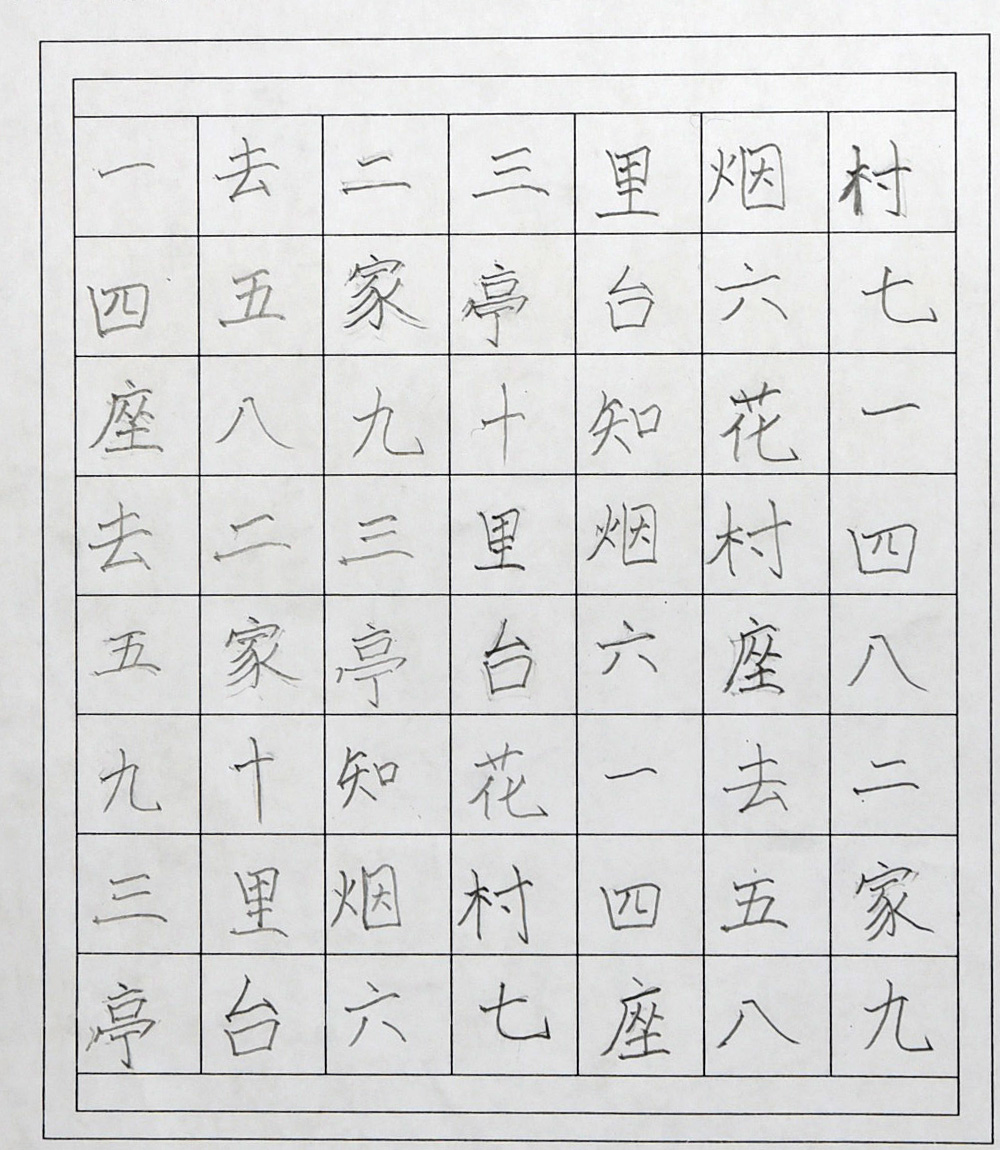 一去二三里烟村
四五家亭台六七
座八九十知花一
去二三里烟村四
五家亭台六座八
九十知花一去二
三里烟村四五家
亭台六七座八九